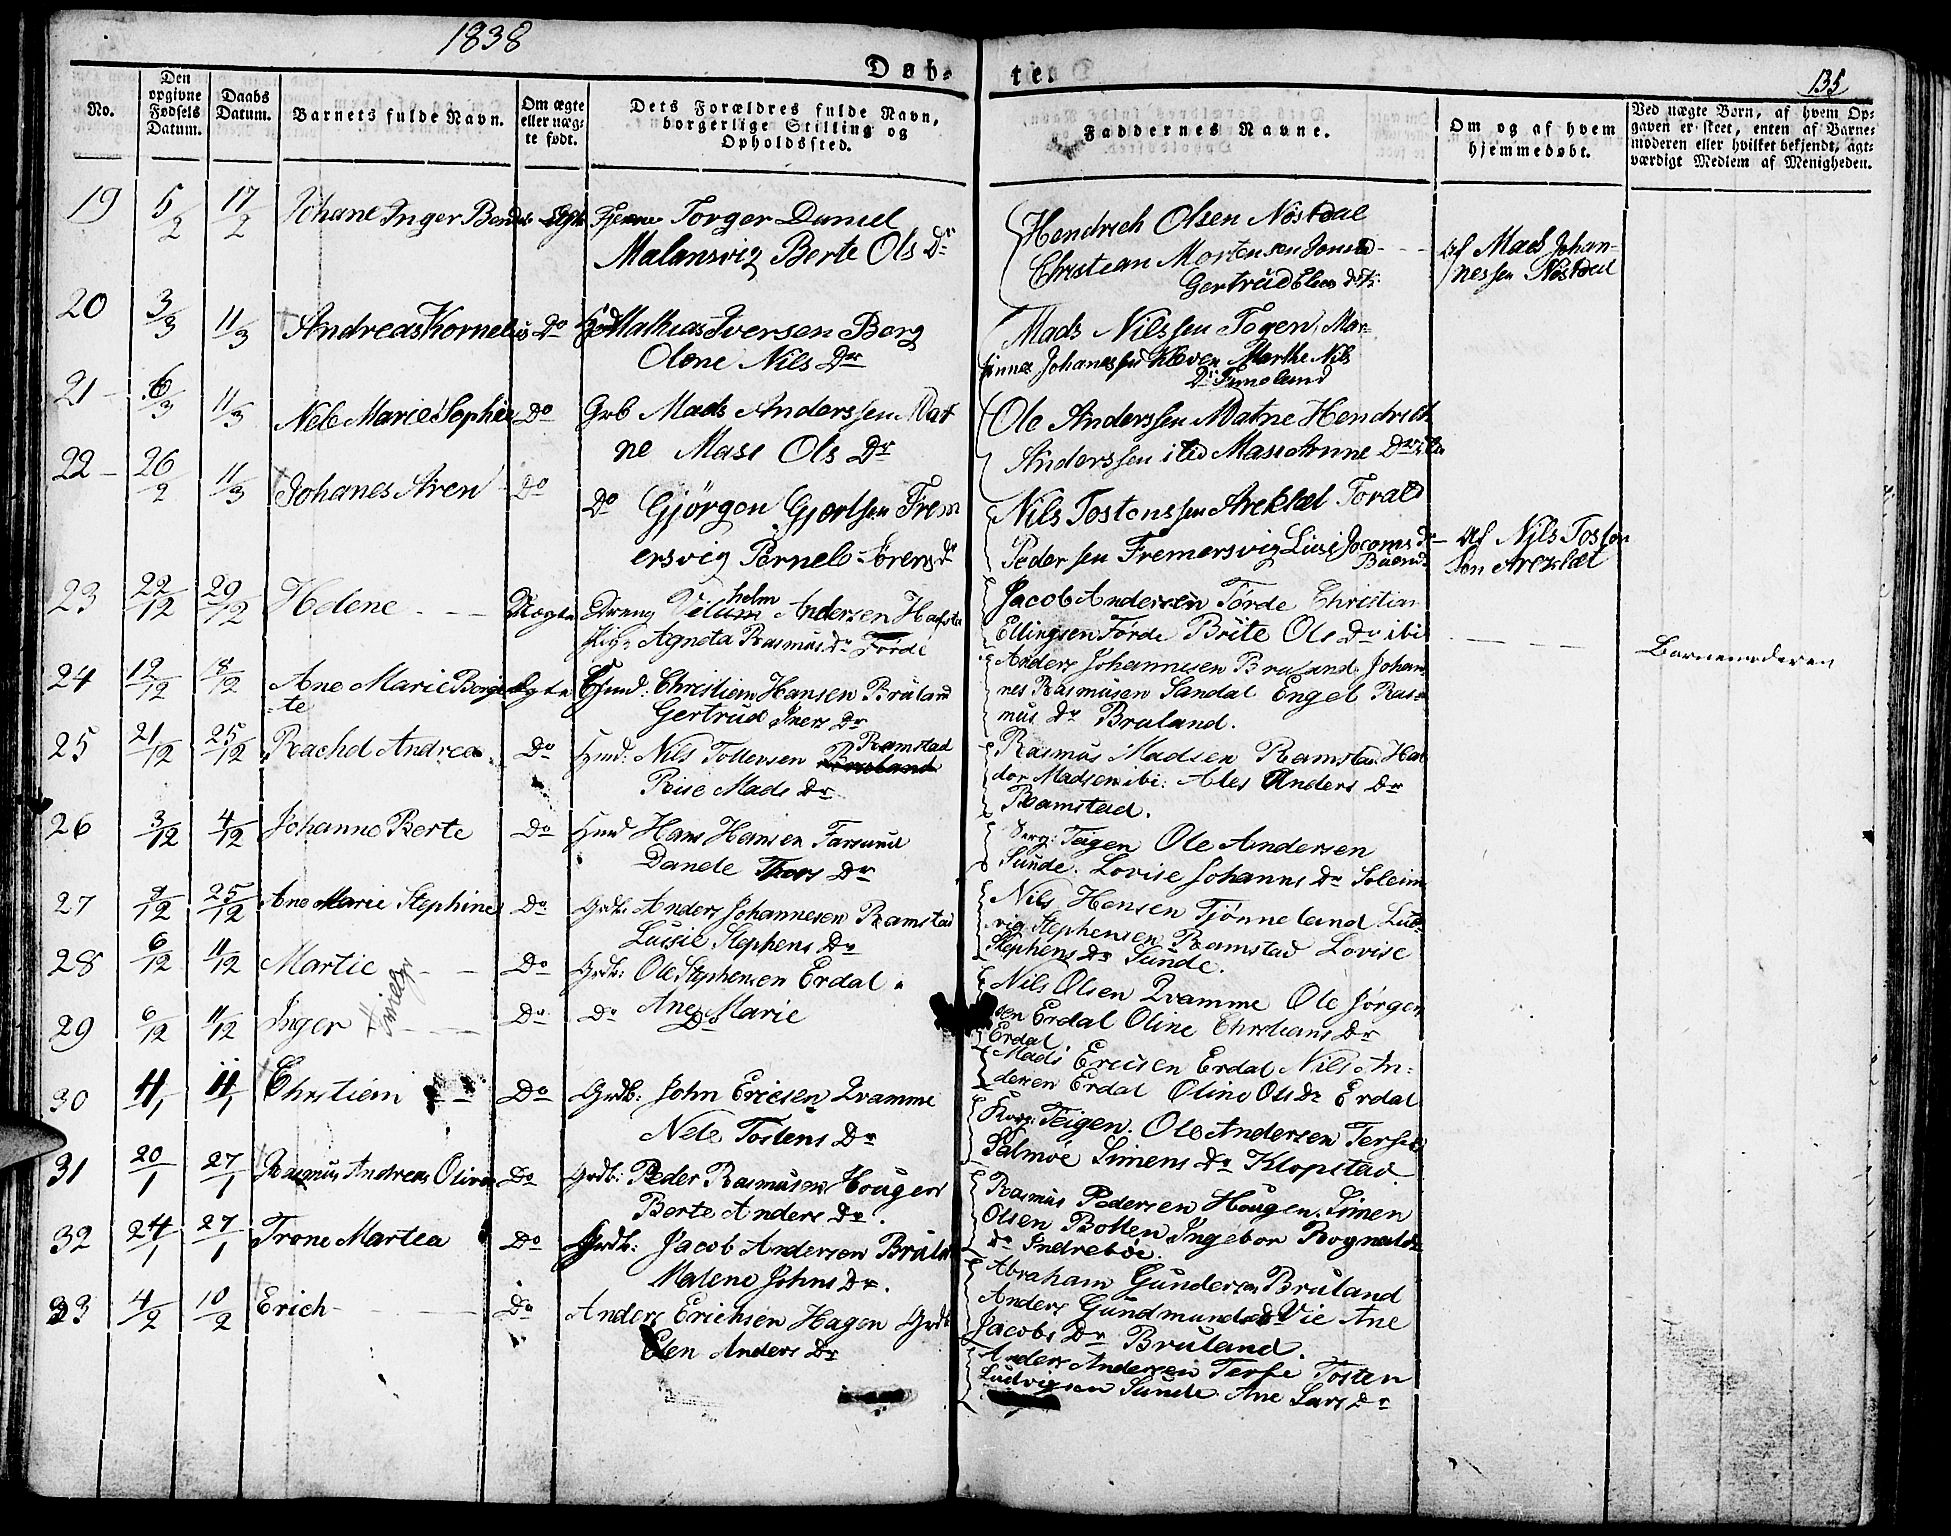 1838
Døb-
te.
135
No.
Den
opgivne
Fødsels
Datum.
Daabs
Datum.
Barnets fulde Navn.
Om ægte
eller næg-
te født.
Dets Forældres fulde Navn,
borgerlige Stilling og
Opholdssted.
Faddernes Navne.
Om og af hvem
hjemmedøbt.
Ved uægte Børn, af hvem Op-
gaven er skeet, enten af Barne-
moderen eller hvilket bekjendt, agt-
værdigt Medlem af Menigheden.
19 5/2 17/2 Johane Inger Torger Daniel
Malansvig Berte Ols Dr
Hendrich Olsen Nøstdal
Christian Mortensen
Gertrud
af Mads Johan-
nessen Nøstdal
20 3/3 11/3 Andreas Kornelius Do Mathias Iversen Borg
Olene Nils Dr
Mads Nilssen Togen, Mar-
Johanessen Kleven Marthe Nils
Dr
21 6/3 11/3 Nele Marie Sophie Do Grb Mads Anderssen Mat
ne Mase Ols Dr
Ole Anderssen Matne Hendrich
Anderssen Anne Dr
22 26/2 11/3 Johanes Aren Do Do Gjørgen Gjertsen Frem
ersvig Pernele Sørens Dr
Nils Tostenssen Arekled Torald
Pedersen Fremersvig
af Nils Tosten
sen Arekled
23 22/12 29/12 Helene Uægte Dreng Vilhelm Andersen
Agneta Rasmus Dr Førde
Jacob Andersen Førde Christian
Ellingsen Førde Brite Ols Dr ibi
Barnemoderen
24 12/12 18/12 Ane Marie Borgi- Ægte Christian Hansen Bruland
te Gertrud Ivers Dr
Anders Johannesen Bruland Johan
nes Rasmusen Sandal Engel Ras-
mus Dr Bruland.
25 21/12 25/12 Rachel Andrea Do Nils Tollersen Ramstad
Rise Mads Dr
Rasmus Madsen Ramstad Hal
dor Madsen ibi: Ales Anders Dr
Ramstad.
26 3/12 4/12 Johanne Berte Do Hans Hansen Farsund
Danele Thors Dr
Serg: Teigen Ole Andersen
Sunde. Lovise Johanns Dr Soleim
27 9/12 25/12 Ane Marie Stephine Do Grdb: Anders Johannesen Ramstad
Lussie Stephens Dr
Nils Hansen Tjønneland Lud-
vig Stephensen Ramstad Lovise
Stephens Dr Sunde.
28 6/12 11/12 Martie Do Grdb: Ole Stephensen Erdal
Ane Marie
Nils Olsen Qvamme Ole Jørgen
sen Erdal Oline Christians Dr
Erdal
29 6/12 11/12 Inger Do Do Do
Mads Ericsen Erdal Nils An-
dersen Erdal Oline Ols Dr Erdal
30 4/1 11/1 Christien Do Grdb: John Ericsen Qvamme
Nele Tostens Dr
Teigen. Ole Andersen Terfse
Salmøe Simens Dr Klopstad.
31 20/1 27/1 Rasmus Andreas Oliver Do Grdb: Peder Rasmusen Hougen
Berte Anders Dr.
Rasmus Pedersen Hougen. Simen
Olsen Botten Ingebor Rognalds
Dr Indrebøe.
32 24/1 27/1 Trone Martea Do Grdb: Jacob Andersen Bruland
Malene Johns Dr.
Abraham Gundersen Bruland
Anders Gundmundsen Vie Ane
Jacobs Dr Bruland.
33 4/2 10/2 Erich Do Anders Erichsen Hagen Grdb
Elen Anders Dr
Anders Andersen Terfse Tosten
Ludvigsen Sunde Ane Lars Dr